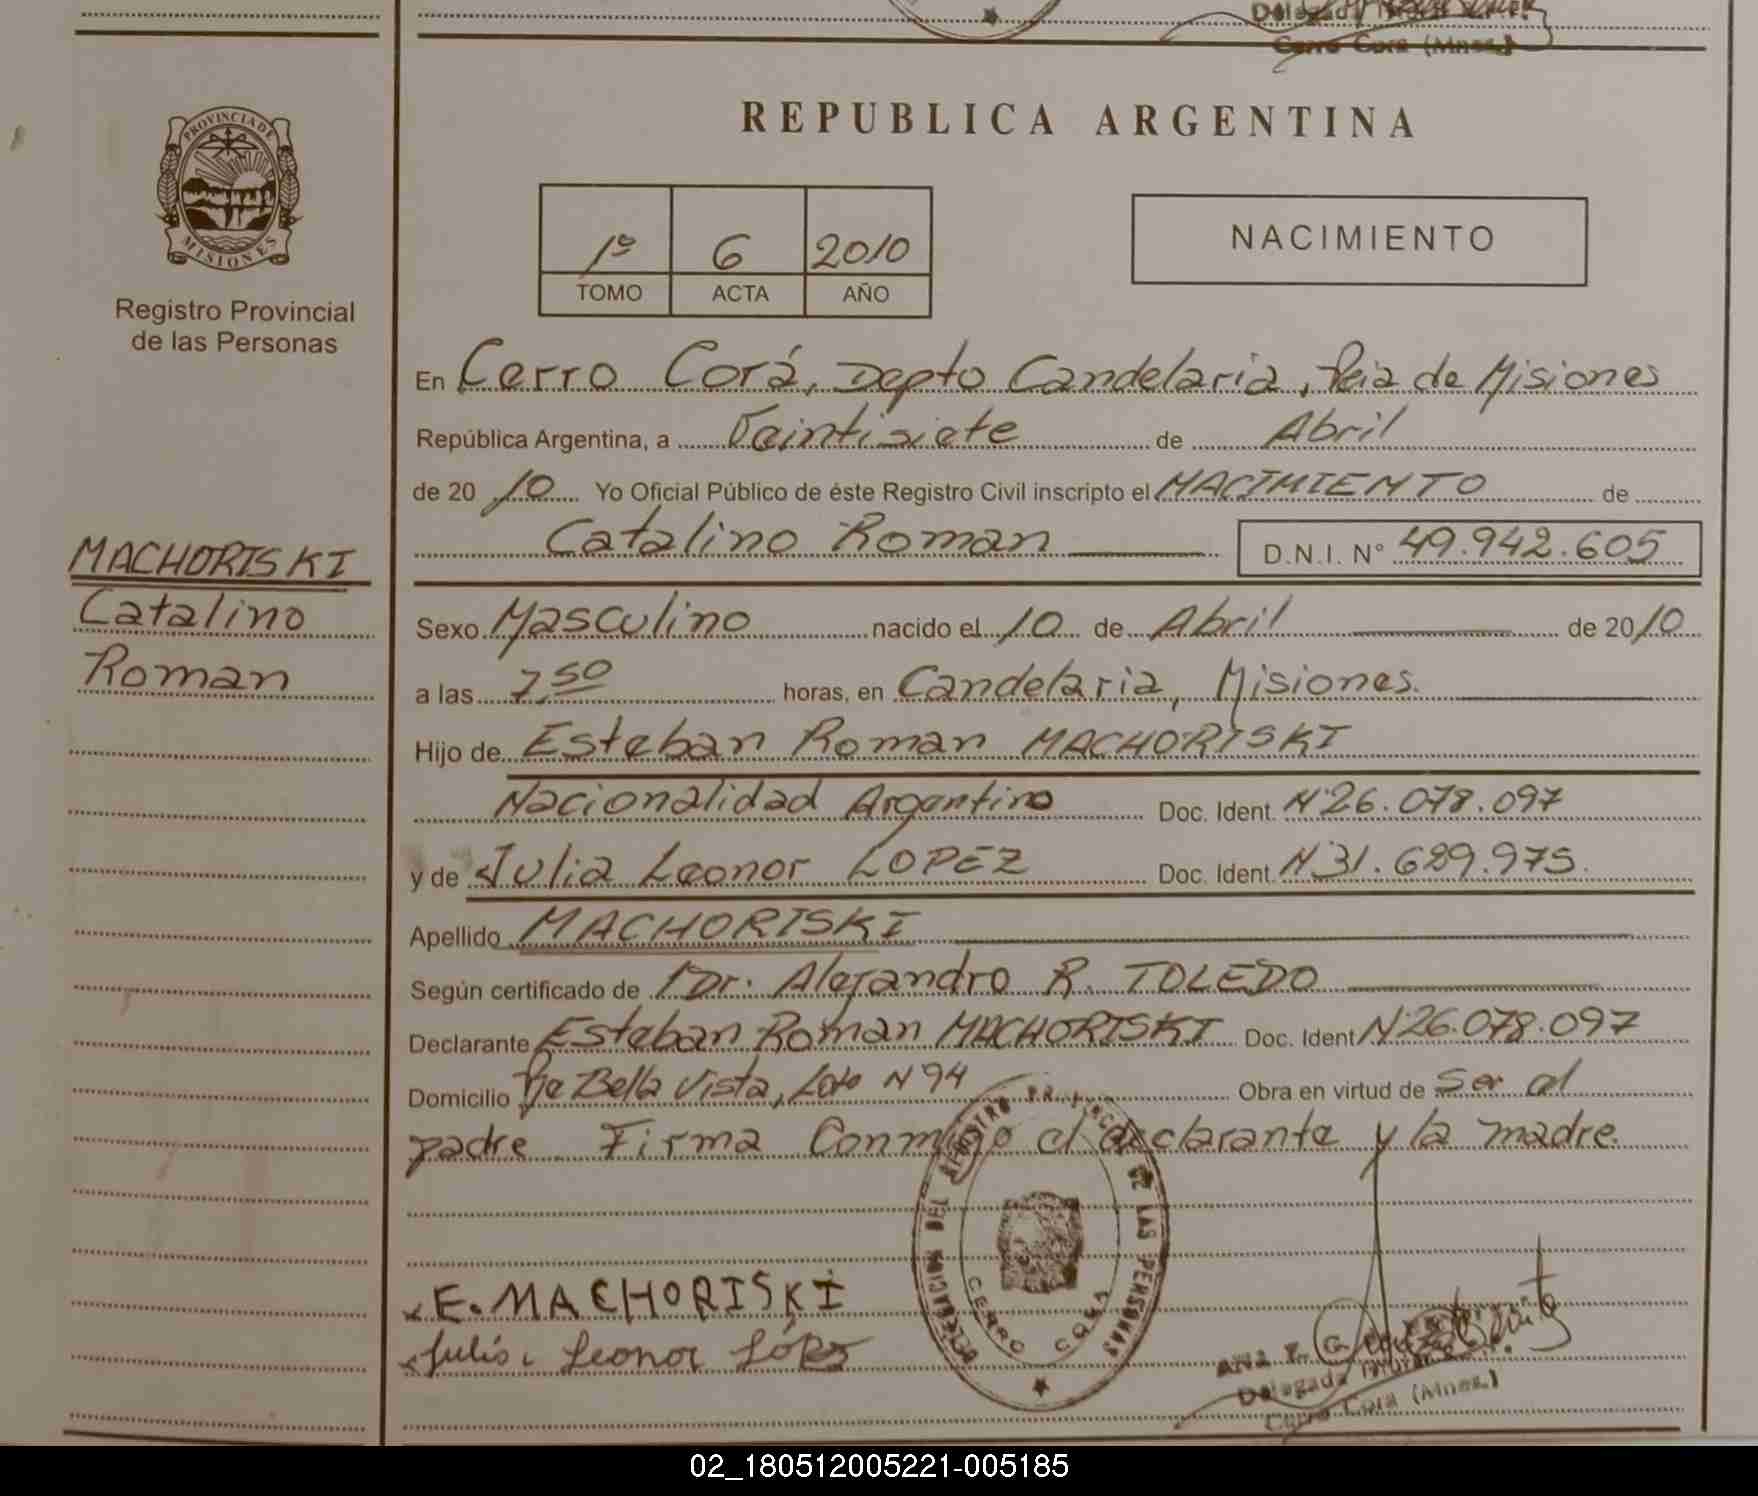 Delegada
Cerro Cora (Mnes.)
PROVINCIA DE
MISIONES
Registro Provincial
de las Personas
REPUBLICA ARGENTINA
1º 6 2010
TOMO ACTA AÑO
NACIMIENTO
En Cerro Corá, Depto Candelaria, Pcia de Misiones
República Argentina, a Veintisiete de Abril
de 2010 Yo Oficial Público de éste Registro Civil inscripto el NACIMIENTO de
Catalino Roman D.N.I. Nº 49.942.605
MACHORISKI
Catalino
Roman
Sexo Masculino nacido el 10 de Abril de 2010
a las 7,50 horas, en Candelaria, Misiones.
Hijo de Esteban Roman MACHORISKI
Nacionalidad Argentino Doc. Ident. Nº 26.078.097
y de Julia Leonor LOPEZ Doc. Ident. Nº 31.629.975.
Apellido MACHORISKI
Según certificado de Dr. Alejandro R. TOLEDO
Declarante Esteban Roman MACHORISKI Doc. Ident Nº 26.078.097
Domicilio Pje Bella Vista, Lote N 94 Obra en virtud de Ser el
padre Firma Conmigo el declarante y la madre.
DELEGACION DEL REGISTRO PROVINCIAL DE LAS PERSONAS
CERRO CORA
x E. MACHORISKI
x Julia Leonor López
Delegada
Cerro Cora (Mnes.)
02_180512005221-005185